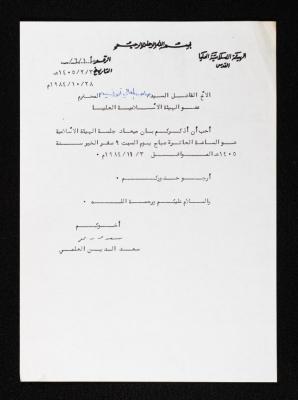 بسم الله الرحمن الرحيم
الهيئة الإسلامية العليا
القدس
الرقم: أ/
التاريخ ٣/٢/١٤٠٥هـ
٢٨/١٠/١٩٨٤م
الأخ الفاضل السيد المحترم
عضو الهيئة الاسلامية العليا
أحب أن أذكركم بان ميعاد جلسة الهيئة الاسلامية
هو الساعة العاشرة صباح يوم السبت ٩ صفر الخير سنة
١٤٠٥هـ الموافق ٣/١١/١٩٨٤م •
أرجو حضوركم •
والسلام عليكم ورحمة اللـه •
أخوكم
سعد الدين العلمي